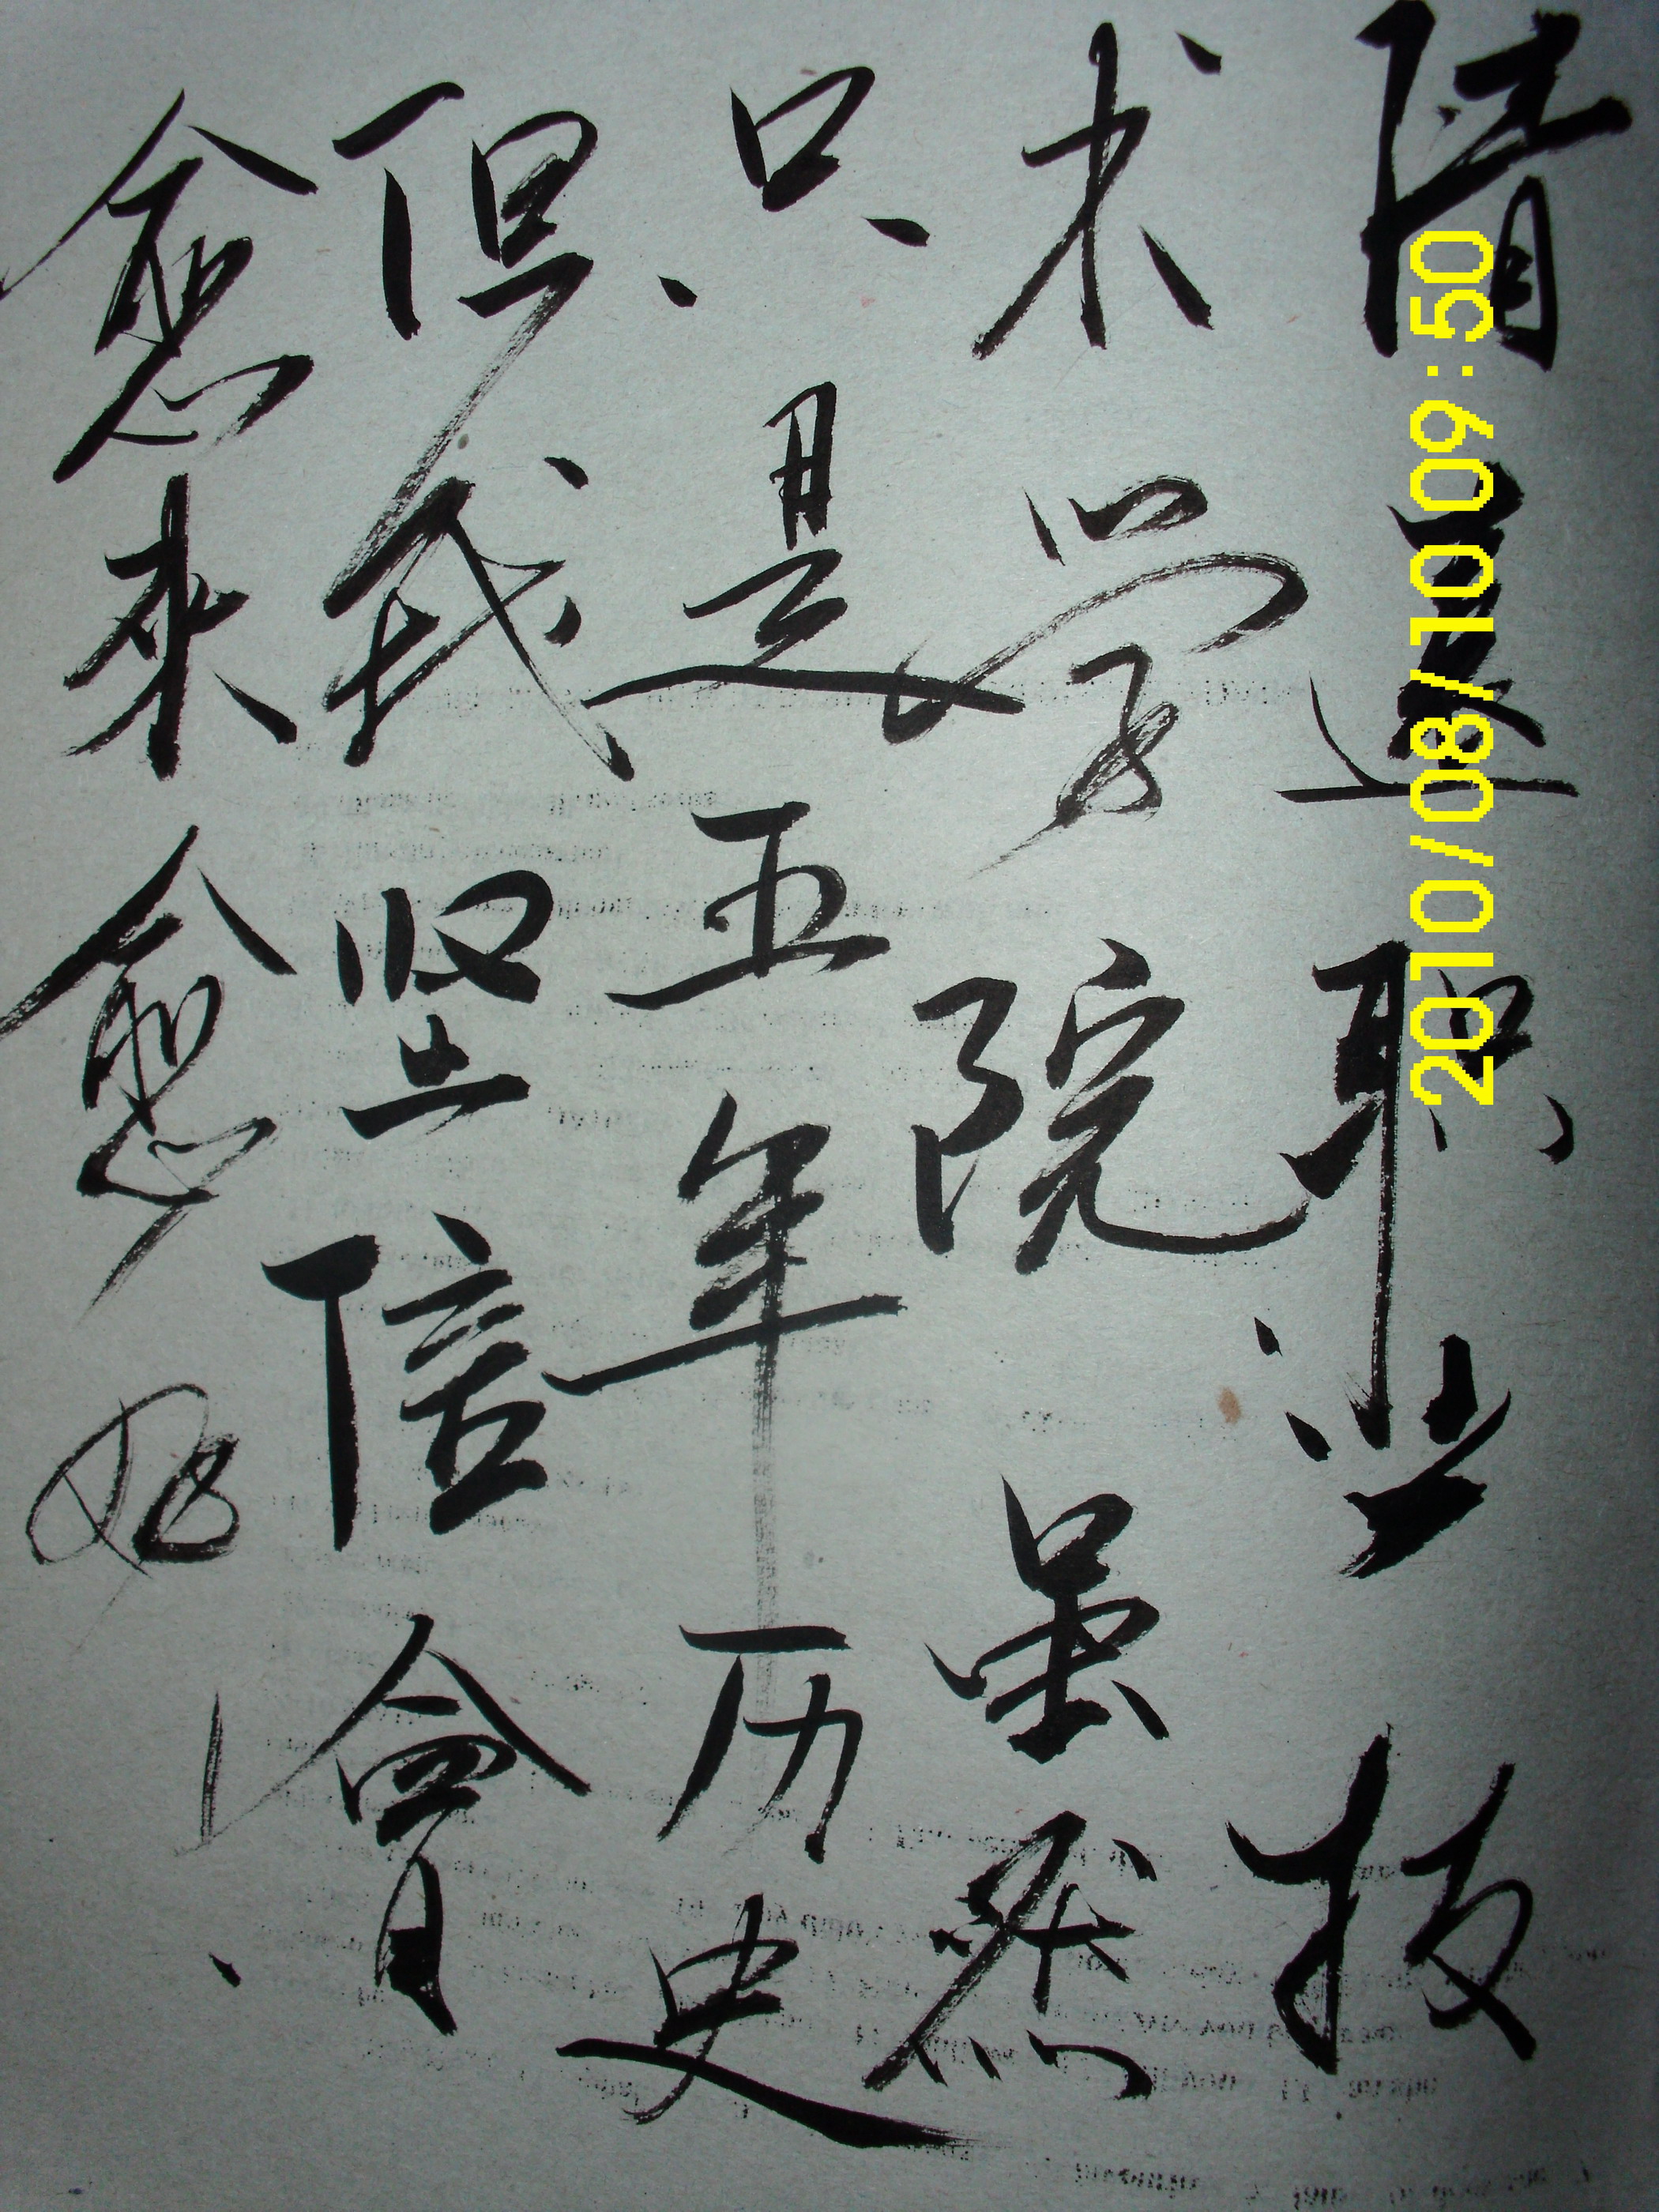 清遠职业技
术学院虽然
只是五年历史
但我坚信會
愈来愈好！
2010/08/10 09:50